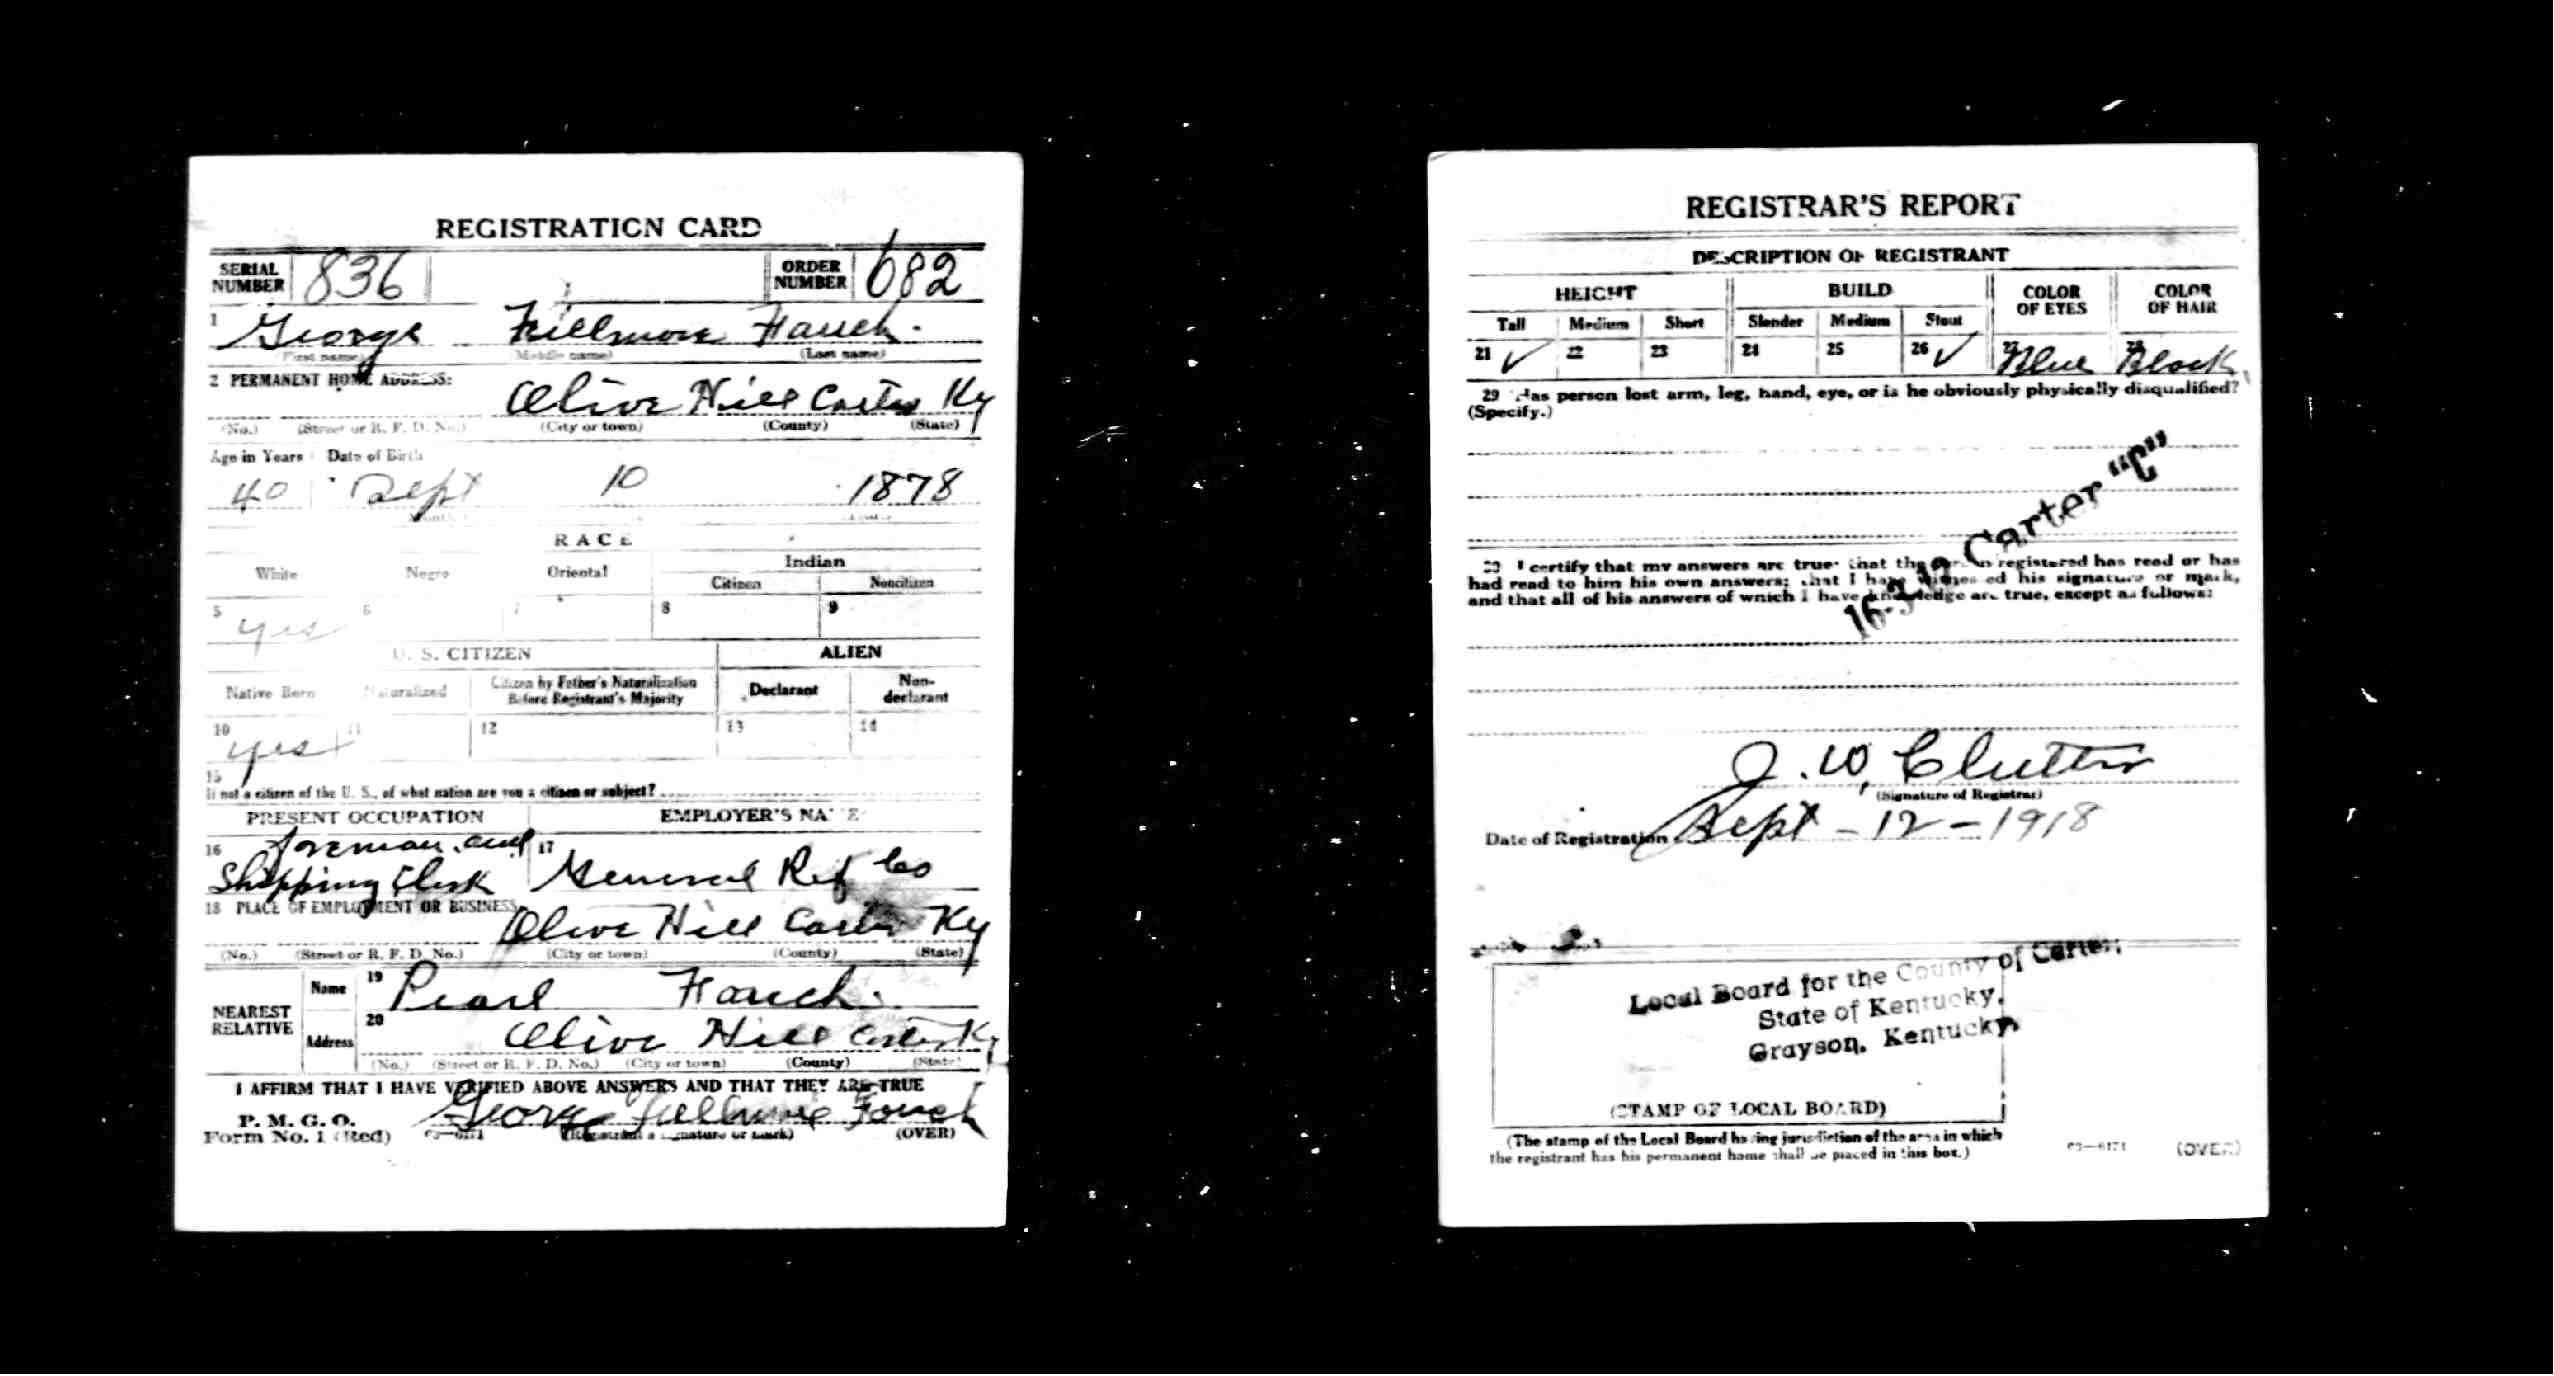 REGISTRATION CARD
SERIAL NUMBER 836 ORDER NUMBER 682
1 George Fillmore Fouch.
(First name) (Middle name) (Last name)
2 PERMANENT HOME ADDRESS:
Olive Hill Carter Ky
(No.) (Street or R. F. D. No.) (City or town) (County) (State)
Age in Years Date of Birth
40 Sept 10 1878
RACE
White Negro Oriental Indian
Citizen Noncitizen
5 6 7 8 9
yes
U. S. CITIZEN ALIEN
Native Born Naturalized Citizen by Father's Naturalization Before Registrant's Majority Declarant Non-declarant
10 11 12 13 14
yes
15
If not a citizen of the U. S., of what nation are you a citizen or subject?
PRESENT OCCUPATION EMPLOYER'S NAME
16 foreman and 17
Shipping Clerk General Ref Co
18 PLACE OF EMPLOYMENT OR BUSINESS
Olive Hill Carter Ky
(No.) (Street or R. F. D. No.) (City or town) (County) (State)
NEAREST RELATIVE Name 19 Pearl Fouch.
Address 20 Olive Hill Carter Ky
(No.) (Street or R. F. D. No.) (City or town) (County) (State)
I AFFIRM THAT I HAVE VERIFIED ABOVE ANSWERS AND THAT THEY ARE TRUE
P. M. G. O.
Form No. 1 (Red) George Fillmore Fouch
(Registrant's signature or mark) (OVER)
REGISTRAR'S REPORT
DESCRIPTION OF REGISTRANT
HEIGHT BUILD COLOR OF EYES COLOR OF HAIR
Tall Medium Short Slender Medium Stout
21 ✓ 22 23 24 25 26 ✓ 27 Blue 28 Black
29 Has person lost arm, leg, hand, eye, or is he obviously physically disqualified?
(Specify.)
30 I certify that my answers are true; that the person registered has read or has
had read to him his own answers; that I have witnessed his signature or mark,
and that all of his answers of which I have knowledge are true, except as follows:
Carter "C"
J. W. Clutter
(Signature of Registrar)
Date of Registration Sept - 12 - 1918
Local Board for the County of Carter,
State of Kentucky,
Grayson, Kentucky,
(STAMP OF LOCAL BOARD)
(The stamp of the Local Board having jurisdiction of the area in which
the registrant has his permanent home shall be placed in this box.)
03—6171 (OVER)